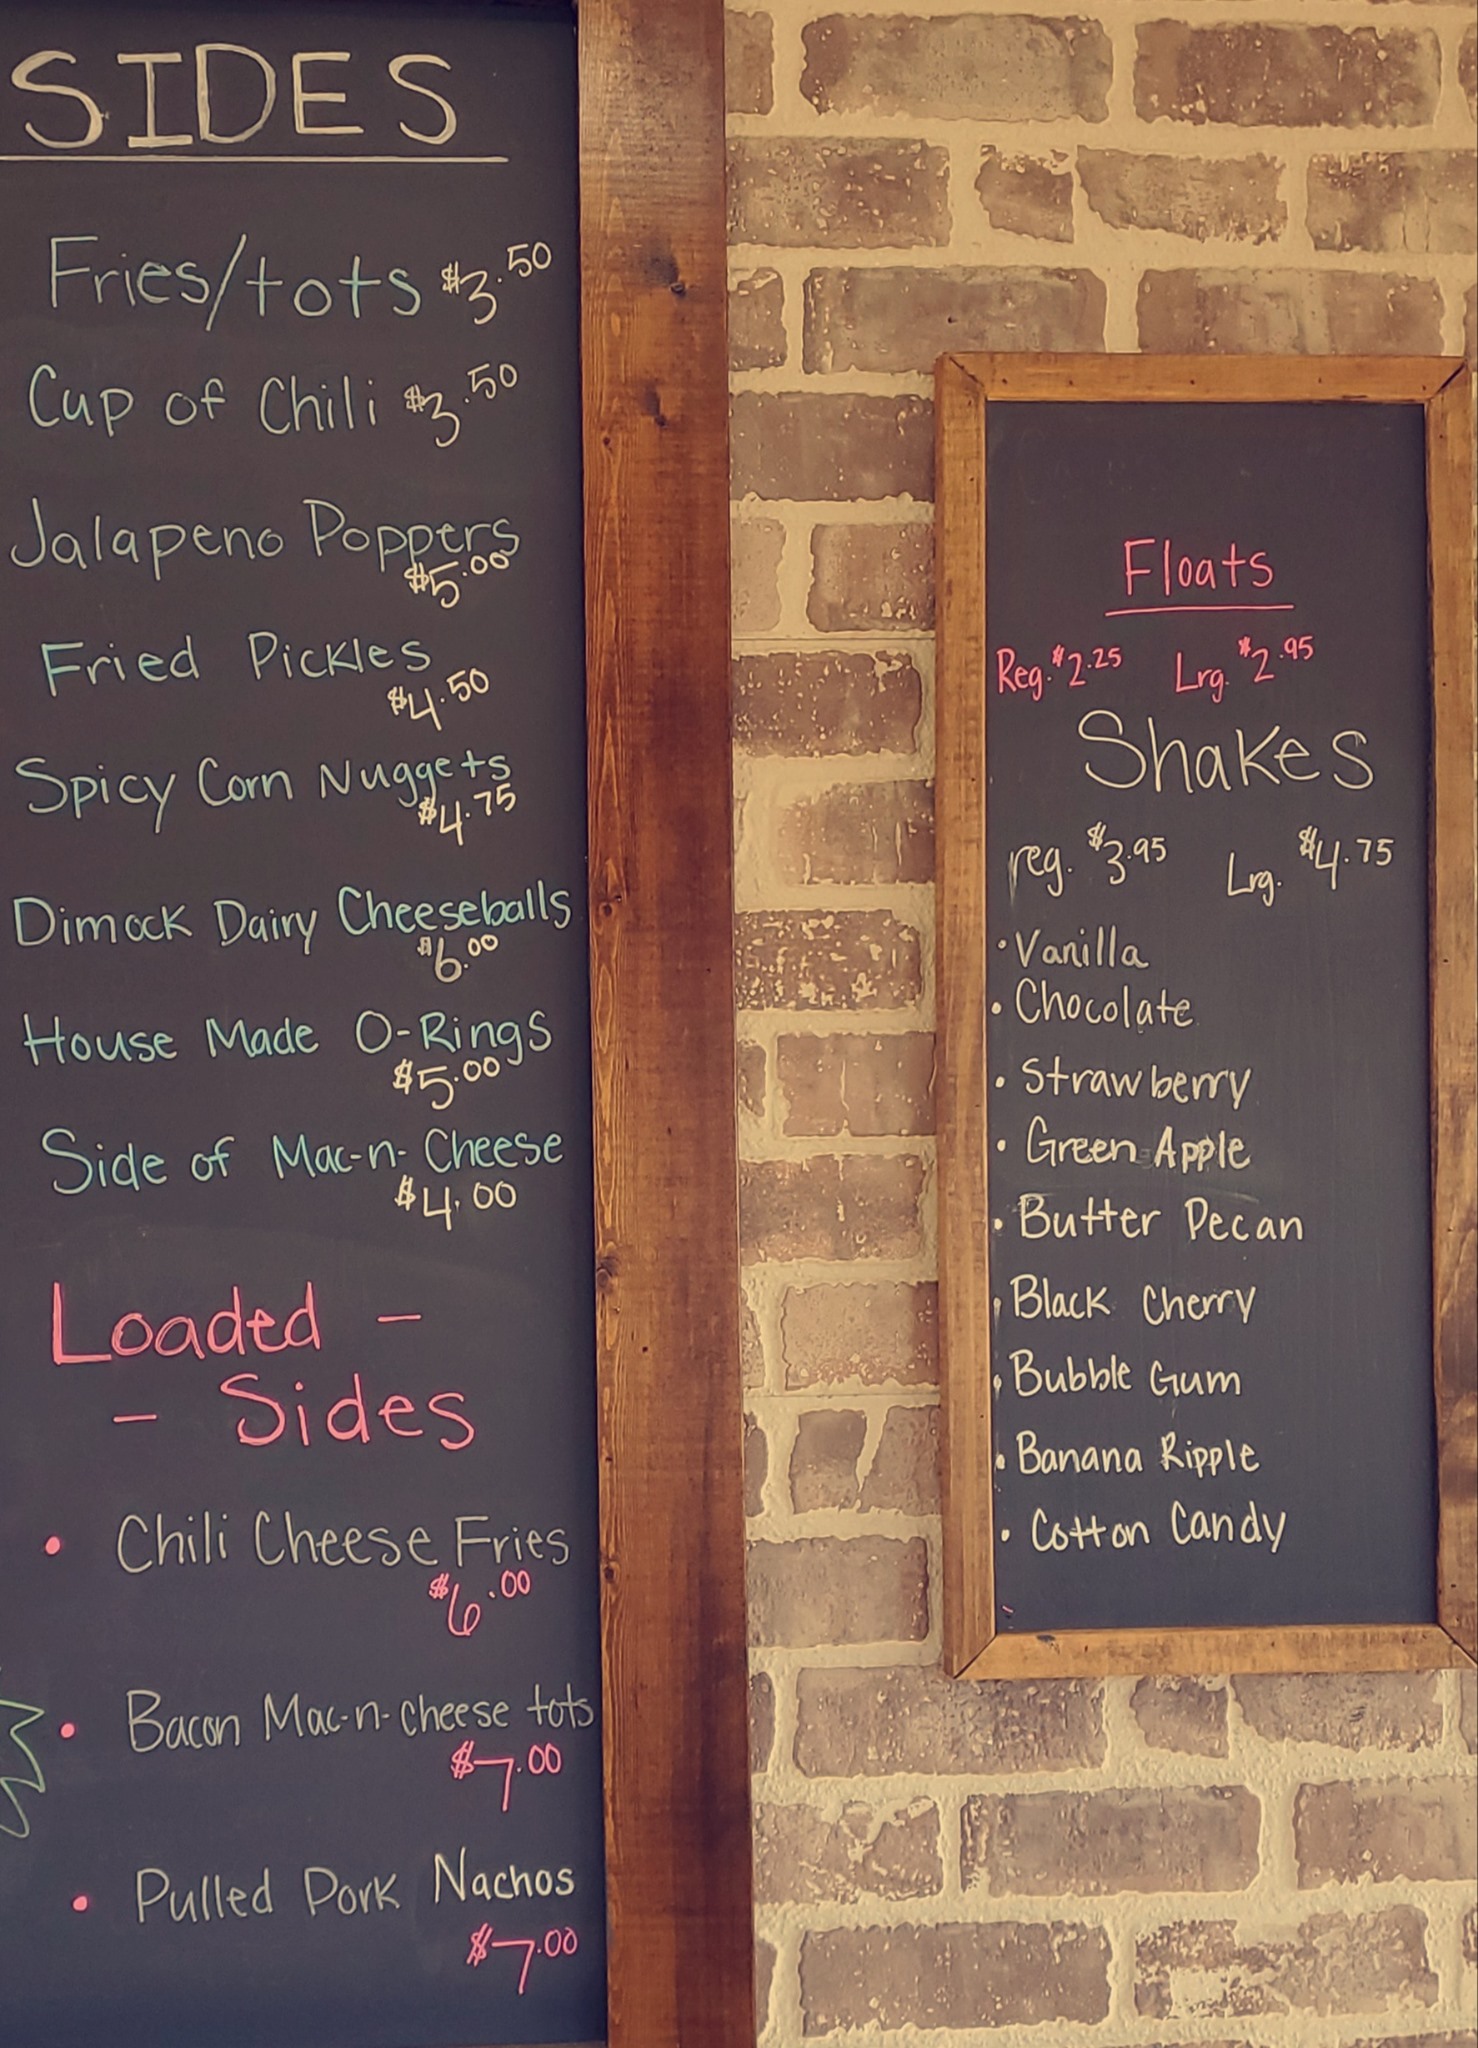 SIDES
Fries/tots $3.50
Cup of Chili $3.50
Jalapeno Poppers
$5.00
Fried Pickles
$4.50
Spicy Corn Nuggets
$4.75
Dimock Dairy Cheeseballs
$6.00
House Made O-Rings
$5.00
Side of Mac-n-Cheese
$4.00
Loaded -
- Sides
• Chili Cheese Fries
$6.00
• Bacon Mac-n-cheese tots
$7.00
• Pulled Pork Nachos
$7.00
Floats
Reg. $2.25 Lrg. $2.95
Shakes
reg. $3.95 Lrg. $4.75
• Vanilla
• Chocolate
• Strawberry
• Green Apple
• Butter Pecan
• Black Cherry
• Bubble Gum
• Banana Ripple
• Cotton Candy